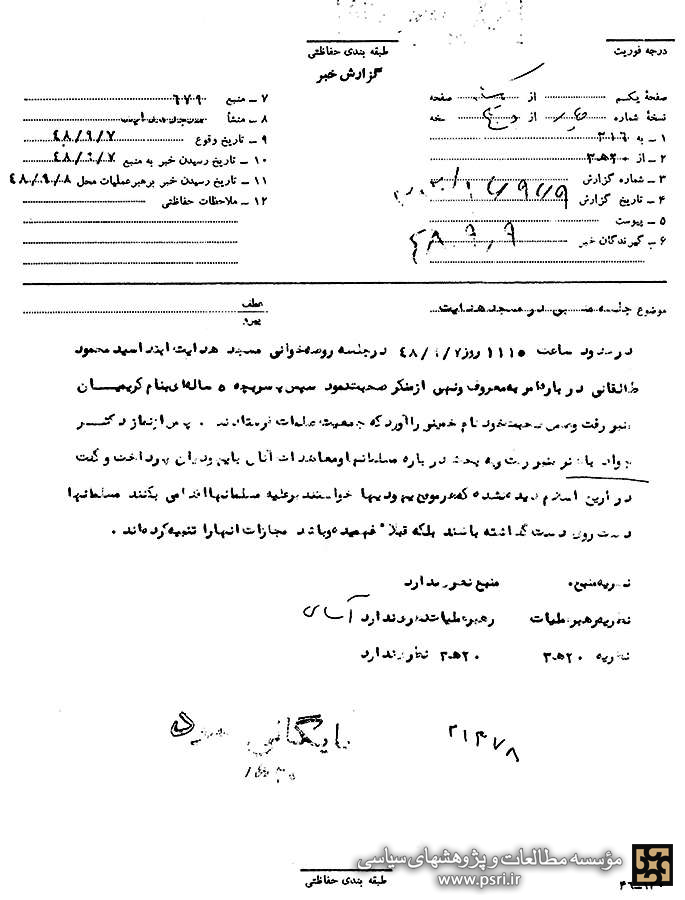 درجه فوریت
طبقه بندی حفاظتی
گزارش خبر
صفحهٔ یکم از صفحه
نسخهٔ شماره از
۱ ـ به ۳۱۶
۲ ـ از ۲۰ﻫ۳
۳ ـ شماره گزارش
۴ ـ تاریخ گزارش
۵ ـ پیوست
۶ ـ گیرندگان خبر
۷ ـ منبع ۶۷۹
۸ ـ منشأ
۹ ـ تاریخ وقوع ۴۸/۹/۷
۱۰ ـ تاریخ رسیدن خبر به منبع ۴۸/۹/۷
۱۱ ـ تاریخ رسیدن خبر برهبر عملیات محل ۴۸/۹/۸
۱۲ ـ ملاحظات حفاظتی
موضوع جلسه مذهبی در مسجد هدایت
عطف
پیرو
در حدود ساعت ۱۱۱۵ روز ۴۸/۹/۷ در جلسه روضه‌خوانی مسجد هدایت ابتدا سید محمود
طالقانی در باره امر به معروف و نهی از منکر صحبت نمود سپس پسر بچه ۵ ساله‌ای بنام کریمیان
منبر رفت و ضمن صحبت خود نام خمینی را آورد که جمعیت صلوات فرستادند . پس از نماز دکتر
جواد باهنر منبر رفت و به بحث در باره مسلمانها و معاهدات آنان با یهودیان پرداخت و گفت
در این اسلام دیده نشده که هر موقع یهودیها خواستند بر علیه مسلمانها اقدامی بکنند مسلمانها
دست روی دست گذاشته باشند بلکه قبلاً فهمیده و باشد مجازات آنها را تنبیه کرده‌اند .
نظریه منبع: منبع نظری ندارد
نظریه رهبر عملیات رهبر عملیات نظری ندارد
نظریه ۲۰ﻫ۳ ۲۰ﻫ۳ نظری ندارد
بایگانی شود
۲۱۴۷۸
مؤسسه مطالعات و پژوهشهای سیاسی
www.psri.ir
طبقه بندی حفاظتی